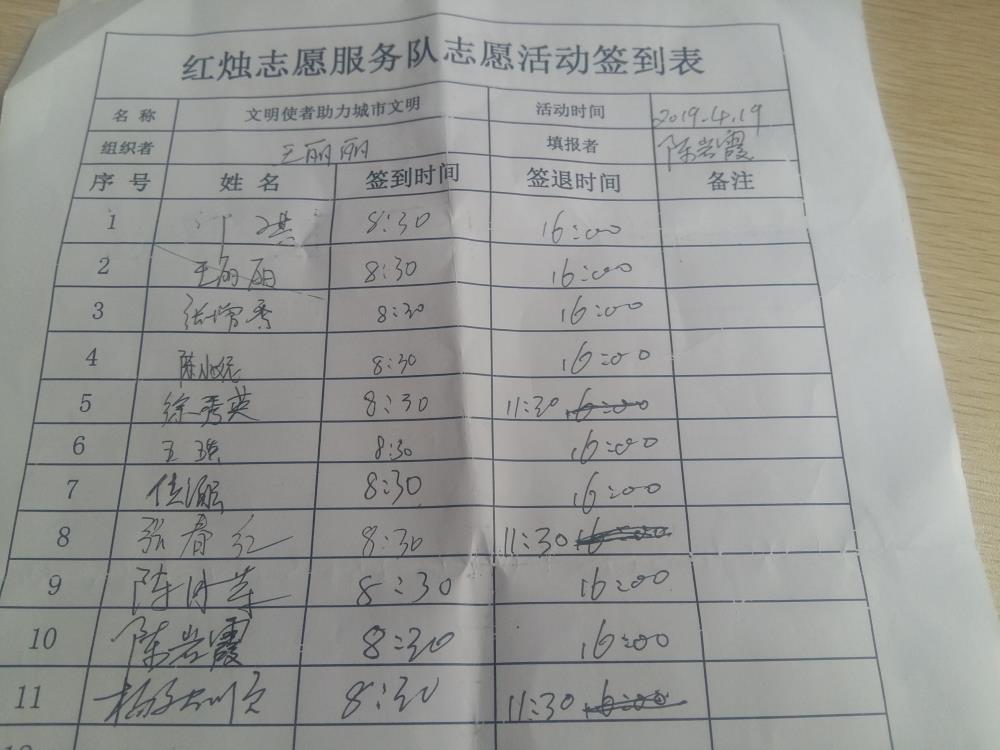 红烛志愿服务队志愿活动签到表
名称 文明使者助力城市文明 活动时间 2019.4.19
组织者 王丽丽 填报者 陈岩霞
序号 姓名 签到时间 签退时间 备注
1 琪 8:30 16:00
2 王丽丽 8:30 16:00
3 张增秀 8:30 16:00
4 陈小 8:30 16:00
5 徐秀英 8:30 11:30 16:00
6 王琪 8:30 16:00
7 8:30 16:00
8 张春红 8:30 11:30 16:00
9 陈 8:30 16:00
10 陈岩霞 8:30 16:00
11 杨 8:30 11:30 16:00